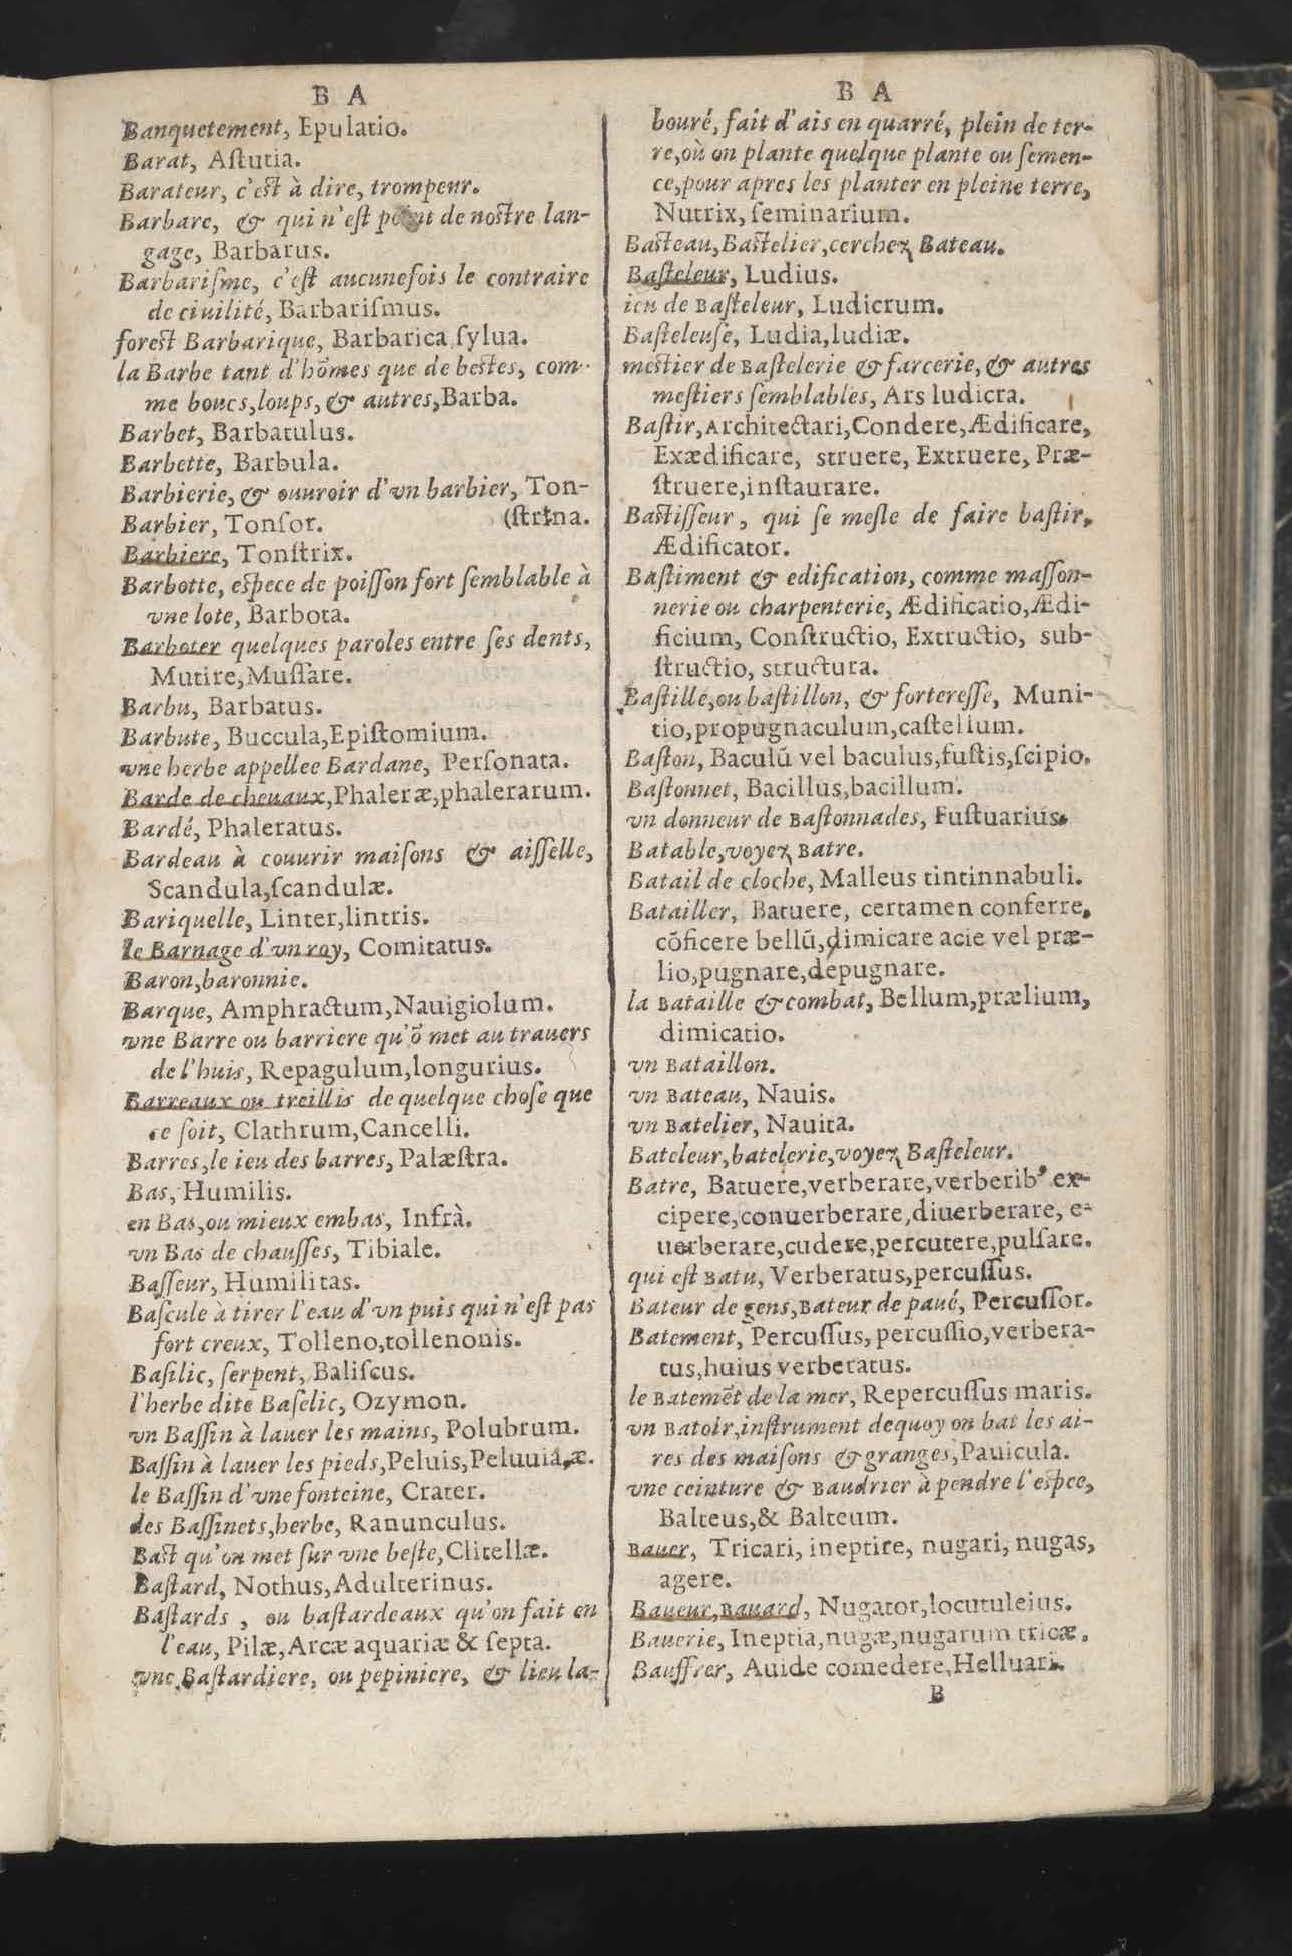 B A
Banquetement, Epulatio.
Barat, Aſtutia.
Barateur, c'eſt à dire, trompeur.
Barbare, & qui n'eſt point de noſtre lan-
gage, Barbarus.
Barbariſme, c'eſt aucunefois le contraire
de ciuilité, Barbariſmus.
foreſt Barbarique, Barbarica ſylua.
la Barbe tant d'hõmes que de beſtes, com-
me boucs,loups, & autres,Barba.
Barbet, Barbatulus.
Barbette, Barbula.
Barbierie, & ouuroir d'vn barbier, Ton-
Barbier, Tonſor. (ſtrina.
Barbiere, Tonſtrix.
Barbotte, eſpece de poiſſon fort ſemblable à
vne lote, Barbota.
Barboter quelques paroles entre ſes dents,
Mutire,Muſſare.
Barbu, Barbatus.
Barbute, Buccula,Epiſtomium.
vne herbe appellee Bardane, Perſonata.
Barde de cheuaux,Phaleræ,phalerarum.
Bardé, Phaleratus.
Bardeau à couurir maiſons & aiſſelle,
Scandula,ſcandulæ.
Bariquelle, Linter,lintris.
le Barnage d'vn roy, Comitatus.
Baron,baronnie.
Barque, Amphractum,Nauigiolum.
vne Barre ou barriere qu'õ met au trauers
de l'huis, Repagulum,longurius.
Barreaux ou treillis de quelque choſe que
ce ſoit, Clathrum,Cancelli.
Barres,le ieu des barres, Palæſtra.
Bas, Humilis.
en Bas,ou mieux embas, Infrà.
vn Bas de chauſſes, Tibiale.
Baſſeur, Humilitas.
Baſcule à tirer l'eau d'vn puis qui n'eſt pas
fort creux, Tolleno,tollenonis.
Baſilic, ſerpent, Baliſcus.
l'herbe dite Baſelic, Ozymon.
vn Baſſin à lauer les mains, Polubrum.
Baſſin à lauer les pieds,Peluis,Peluuia,æ.
le Baſſin d'vne fonteine, Crater.
des Baſſinets,herbe, Ranunculus.
Baſt qu'on met ſur vne beſte,Clitellæ.
Baſtard, Nothus,Adulterinus.
Baſtards , ou baſtardeaux qu'on fait en
l'eau, Pilæ,Arcæ aquariæ & ſepta.
vne Baſtardiere, ou pepiniere, & lieu la-
B A
bouré, fait d'ais en quarré, plein de ter-
re,où on plante quelque plante ou ſemen-
ce,pour apres les planter en pleine terre,
Nutrix, ſeminarium.
Baſteau,Baſtelier,cerchez Bateau.
Baſteleur, Ludius.
ieu de Baſteleur, Ludicrum.
Baſteleuſe, Ludia,ludiæ.
meſtier de Baſtelerie & farcerie, & autres
meſtiers ſemblables, Ars ludicra.
Baſtir,Architectari,Condere,Ædificare,
Exædificare, struere, Extruere, Præ-
ſtruere,inſtaurare.
Baſtiſſeur, qui ſe meſle de faire baſtir,
Ædificator.
Baſtiment & edification, comme maſſon-
nerie ou charpenterie, Ædificatio,Ædi-
ficium, Conſtructio, Extructio, sub-
ſtructio, structura.
Baſtille,ou baſtillon, & fortereſſe, Muni-
tio,propugnaculum,caſtellum.
Baſton, Baculũ vel baculus,fuſtis,ſcipio.
Baſtonnet, Bacillus,bacillum.
vn donneur de Baſtonnades, Fuſtuarius.
Batable,voyez Batre.
Batail de cloche, Malleus tintinnabuli.
Batailler, Batuere, certamen conferre,
cõficere bellũ,dimicare acie vel præ-
lio,pugnare,depugnare.
la Bataille & combat, Bellum,prælium,
dimicatio.
vn Bataillon.
vn Bateau, Nauis.
vn Batelier, Nauita.
Bateleur,batelerie,voyez Baſteleur.
Batre, Batuere,verberare,verberibꝰ ex-
cipere,conuerberare,diuerberare, e-
uerberare,cudere,percutere,pulſare.
qui eſt Batu, Verberatus,percuſſus.
Bateur de gens,Bateur de paué, Percuſſor.
Batement, Percuſſus, percuſſio,verbera-
tus,huius verberatus.
le Batemẽt de la mer, Repercuſſus maris.
vn Batoir,inſtrument dequoy on bat les ai-
res des maiſons & granges,Pauicula.
vne ceinture & Baudrier à pendre l'eſpee,
Balteus,& Balteum.
Bauer, Tricari, ineptire, nugari, nugas,
agere.
Baueur,Bauard, Nugator,locutuleius.
Bauerie, Ineptia,nugæ,nugarum tricæ.
Bauffrer, Auide comedere,Helluari.
B